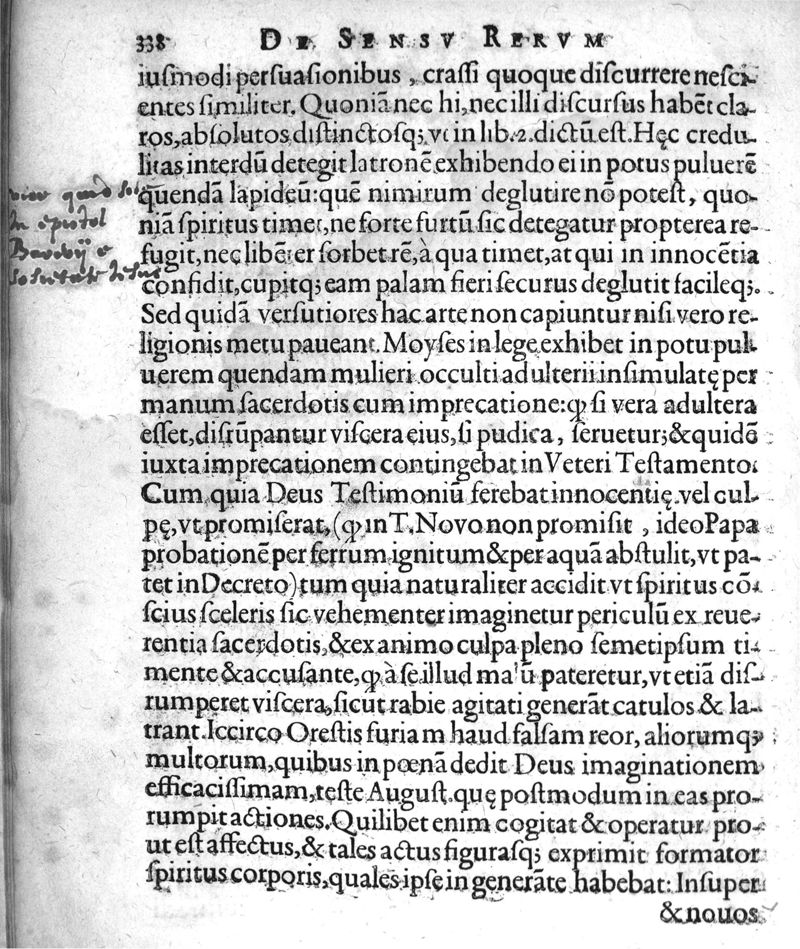 338 DE SENSV RERVM
iusmodi persuasionibus, crassi quoque discurrere nesci-
entes similiter. Quoniã nec hi, nec illi discursus habẽt cla-
ros, absolutos distinctosq; vt in lib. 2. dictũ est. Hęc credu-
litas interdũ detegit latronẽ exhibendo ei in potus puluerẽ
quendã lapideũ: quẽ nimirum deglutire nõ potest, quo-
niã spiritus timet, ne forte furtũ sic detegatur propterea re-
fugit, nec libẽter sorbet rẽ, à qua timet, at qui in innocẽtia
confidit, cupitq; eam palam fieri securus deglutit facileq;.
Sed quidã versutiores hac arte non capiuntur nisi vero re-
ligionis metu paueant. Moyses in lege exhibet in potu pul-
uerem quendam mulieri occulti adulterii insimulatę per
manum sacerdotis cum imprecatione: ꝙ si vera adultera
esset, disrũpantur viscera eius, si pudica, seruetur; & quidẽ
iuxta imprecationem contingebat in Veteri Testamento.
Cum quia Deus Testimoniũ ferebat innocentię vel cul-
pę, vt promiserat, (ꝙ in T. Novo non promisit, ideo Papa
probationẽ per ferrum ignitum & per aquã abstulit, vt pa-
tet in Decreto) tum quia naturaliter accidit vt spiritus cõ-
scius sceleris sic vehementer imaginetur periculũ ex reue-
rentia sacerdotis, & ex animo culpa pleno semetipsum ti-
mente & accusante, ꝙ à se illud malũ pateretur, vt etiã dis-
rumperet viscera, sicut rabie agitati generãt catulos & la-
trant. Iccirco Orestis furiam haud falsam reor, aliorumq;
multorum, quibus in pœnã dedit Deus imaginationem
efficacissimam, teste August. quę postmodum in eas pro-
rumpit actiones. Quilibet enim cogitat & operatur pro-
ut est affectus, & tales actus figurasq; exprimit formator
spiritus corporis, quales ipse in generãte habebat: Insuper
& nouos
in epistol